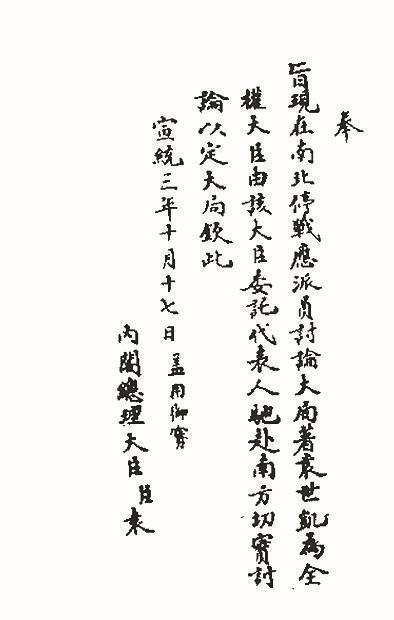 奉
旨現在南北停戰應派員討論大局著袁世凱為全
權大臣由該大臣委託代表人馳赴南方切實討
論以定大局欽此
宣統三年十月十七日蓋用御寶
內閣總理大臣臣袁